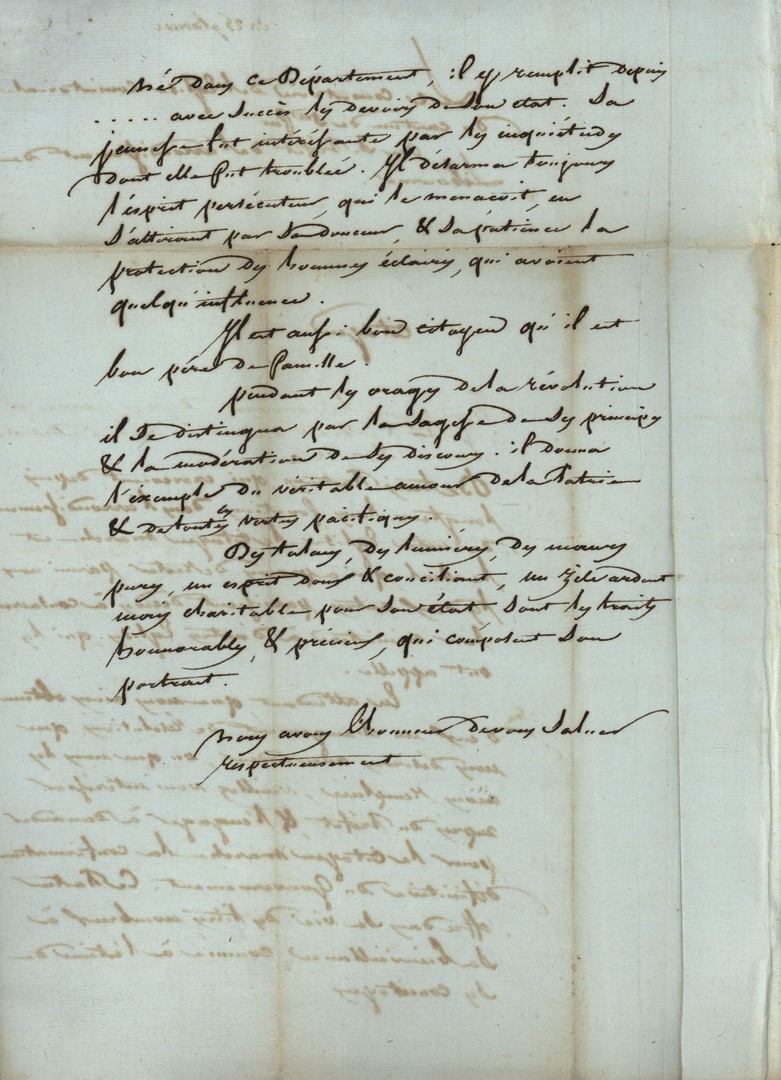 né dans ce Département, il y remplit depuis
..... avec succès les devoirs de son état. Sa
jeunesse fut intéressante par les inquiétudes
dont elle fut troublée. Il désarma toujours
l'esprit persécuteur, qui le menacoit, en
s'attirant par sa douceur, & sa patience la
protection des hommes éclairés, qui avoient
quelqu'influence.
Il est aussi bon citoyen qu'il est
bon père de famille.
pendant les orages de la révolution
il se distingua par la sagesse de ses principes
& la modération de ses discours. il donna
l'exemple du véritable amour de la Patrie
& de toutes les vertus pacifiques.
Des talans, des lumières, des mœurs
pures, un esprit doux & conciliant, un zèle ardent
mais charitable pour son état sont les traits
honnorables, & précieux, qui composent son
portrait.
nous avons l'honneur de vous saluer
respectueusement